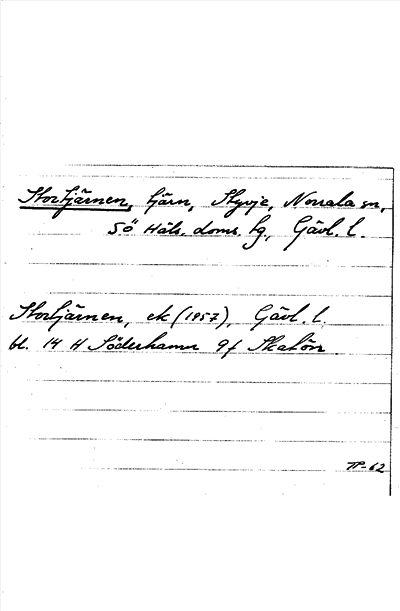 Stortjärnen, tjärn, Styvje, Norrala sn,
Sö Häls. doms. tg, Gävl. l.
Stortjärnen, ek (1957), Gävl. l.
bl. 14 H Söderhamn 9f Skatön
TP-62